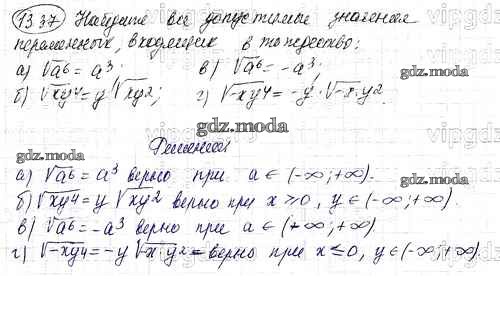 1337 Найдите все допустимые значения
переменных, входящих в тождество:
а) √a⁶ = a³; в) √a⁶ = -a³;
б) √xy⁴ = y √xy²; г) √-xy⁴ = -y · √-x · y².
gdz.moda
Решение
а) √a⁶ = a³ верно при a ∈ (-∞; +∞).
б) √xy⁴ = y √xy² верно при x ⩾ 0, y ∈ (-∞; +∞).
в) √a⁶ = -a³ верно при a ∈ (+∞; +∞)
г) √-xy⁴ = -y √-x · y² = верно при x ≤ 0, y ∈ (-∞; +∞)